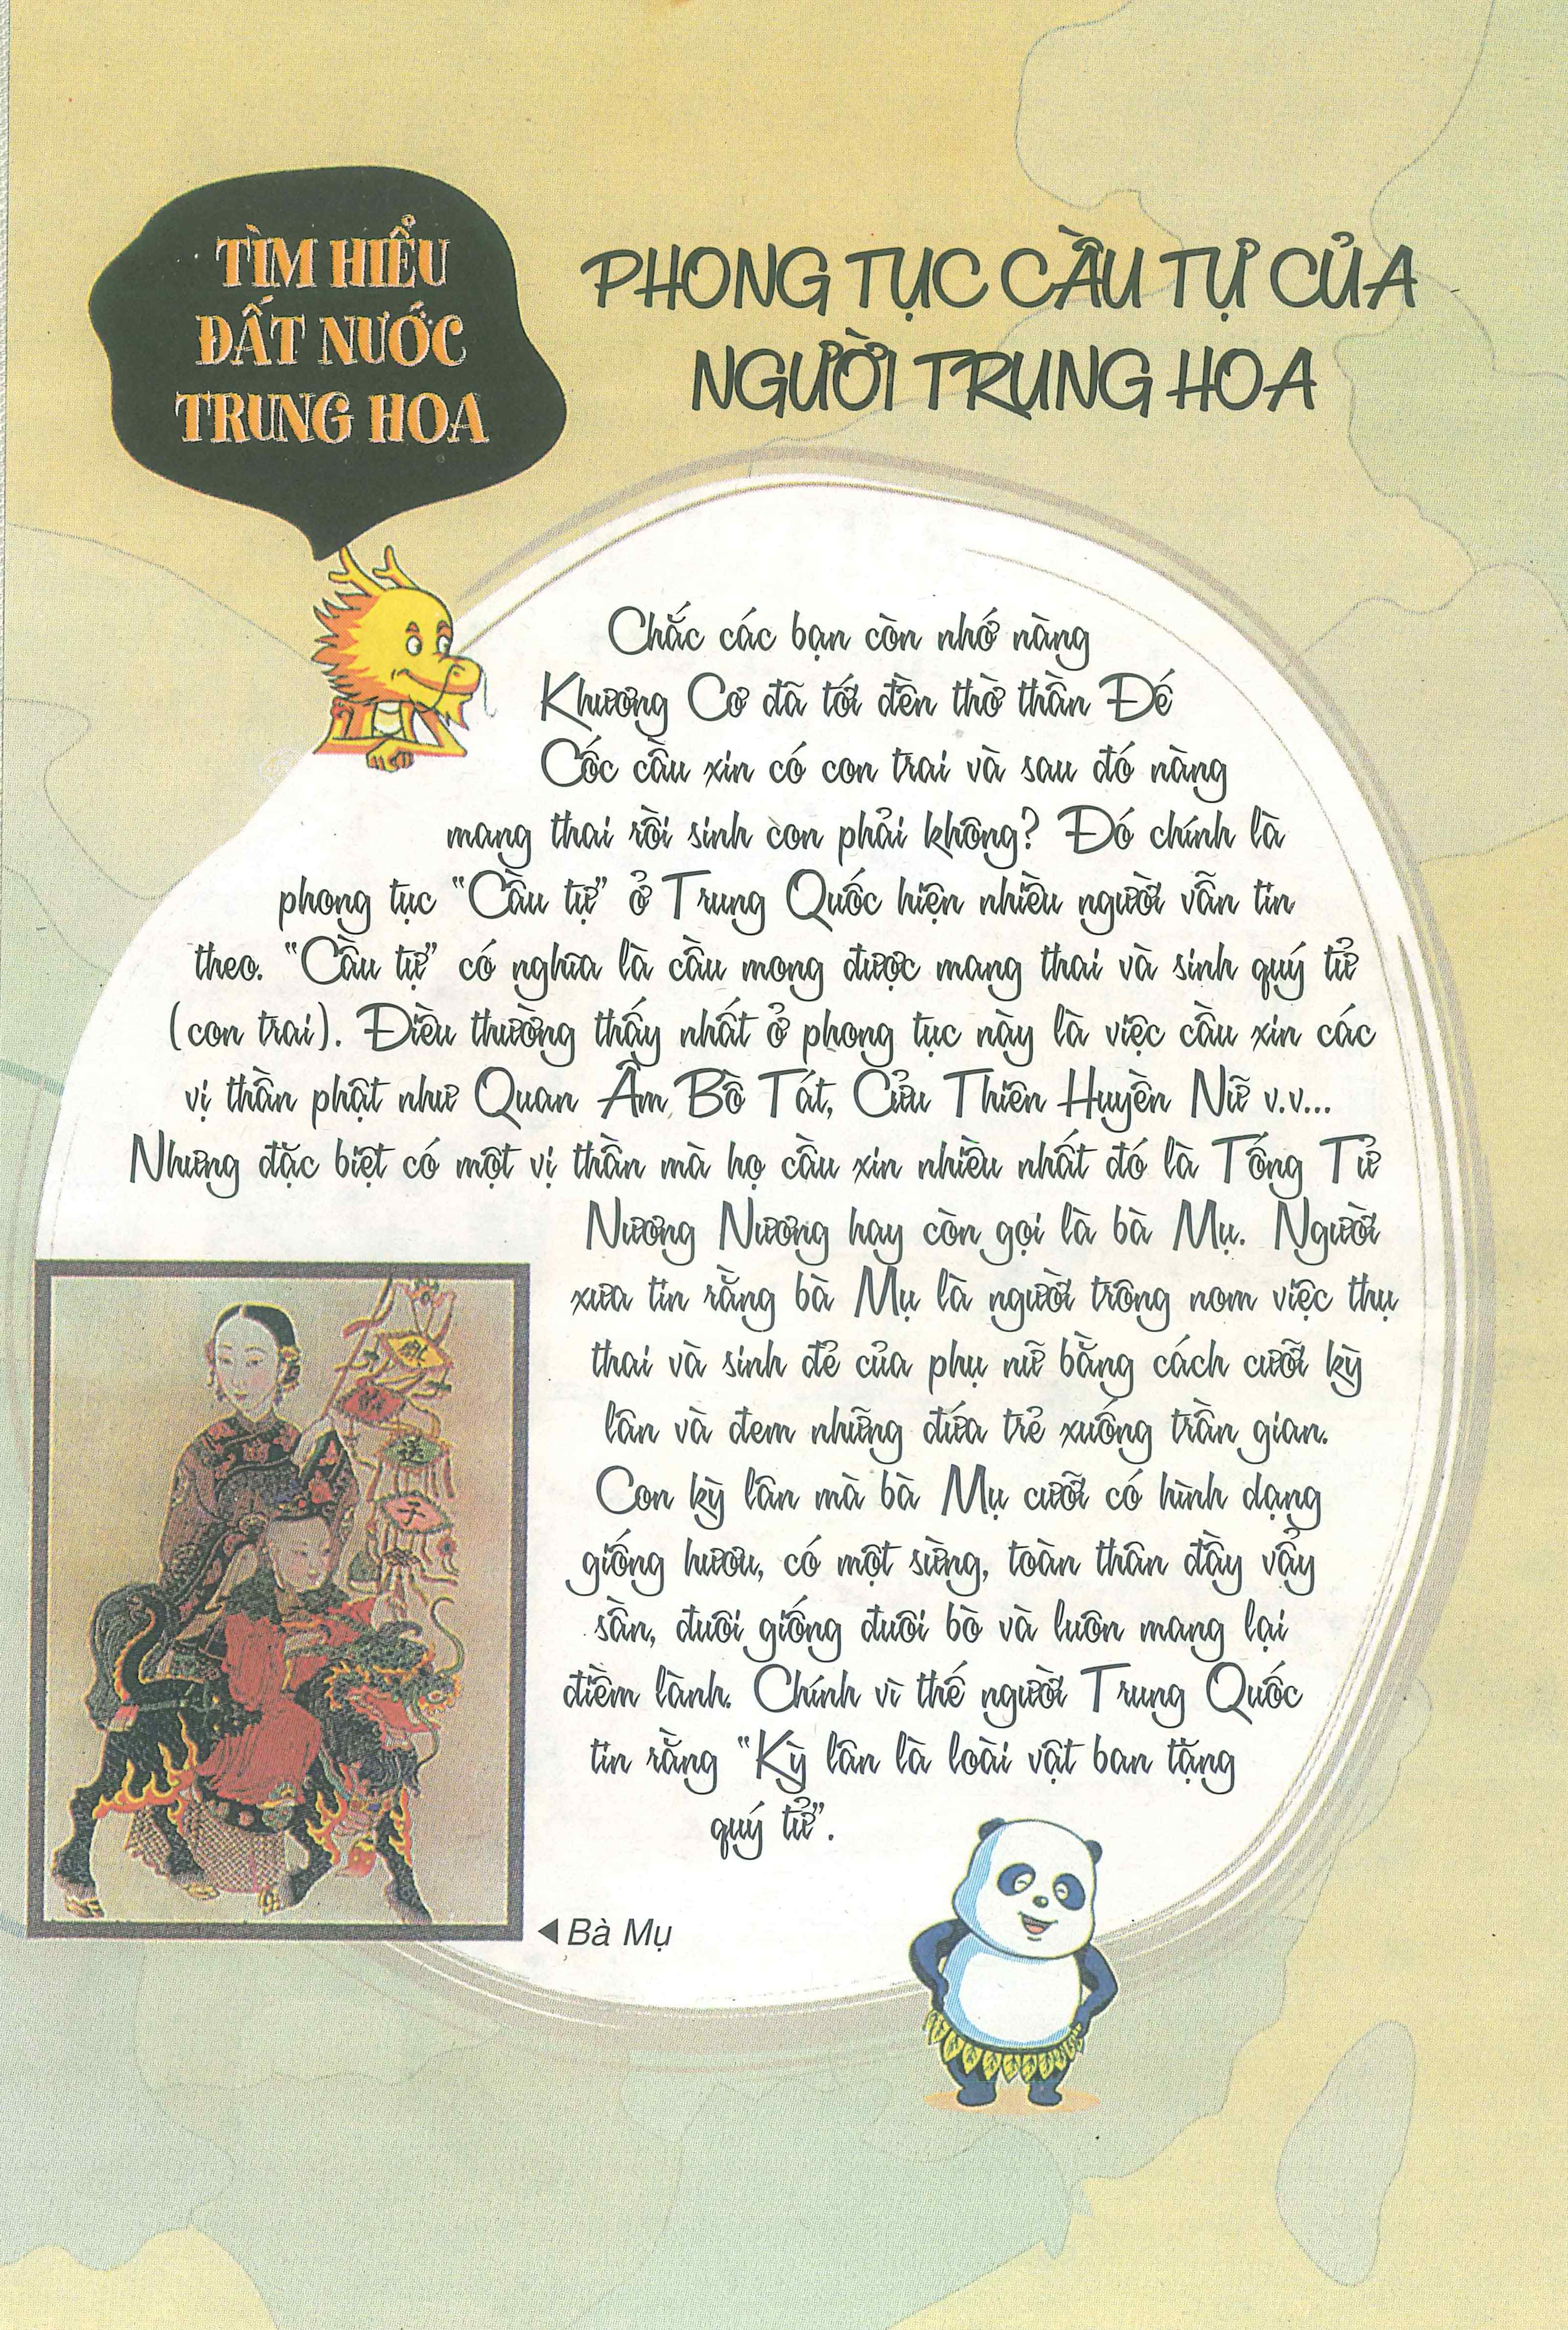 TÌM HIỂU
ĐẤT NƯỚC
TRUNG HOA
PHONG TỤC CẦU TỰ CỦA
NGƯỜI TRUNG HOA
Chắc các bạn còn nhớ nàng
Khương Cơ đã tới đền thờ thần Đế
Cốc cầu xin có con trai và sau đó nàng
mang thai rồi sinh con phải không? Đó chính là
phong tục “Cầu tự” ở Trung Quốc hiện nhiều người vẫn tin
theo. “Cầu tự” có nghĩa là cầu mong được mang thai và sinh quý tử
(con trai). Điều thường thấy nhất ở phong tục này là việc cầu xin các
vị thần phật như Quan Âm Bồ Tát, Cửu Thiên Huyền Nữ v.v...
Nhưng đặc biệt có một vị thần mà họ cầu xin nhiều nhất đó là Tống Tử
Nương Nương hay còn gọi là bà Mụ. Người
xưa tin rằng bà Mụ là người trông nom việc thụ
thai và sinh đẻ của phụ nữ bằng cách cưỡi kỳ
lân và đem những đứa trẻ xuống trần gian.
Con kỳ lân mà bà Mụ cưỡi có hình dạng
giống hươu, có một sừng, toàn thân đầy vẩy
sần, đuôi giống đuôi bò và luôn mang lại
điềm lành. Chính vì thế người Trung Quốc
tin rằng “Kỳ lân là loài vật ban tặng
quý tử”.
送
子
◀ Bà Mụ